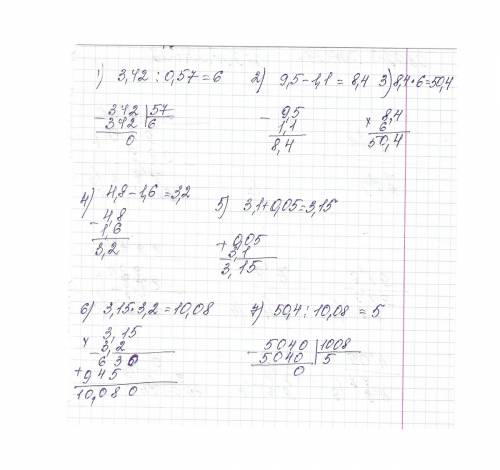 1) 3,42 : 0,57 = 6 2) 9,5 - 1,1 = 8,4 3) 8,4 · 6 = 50,4
- 342 | 57
342 | 6
0
- 9,5
1,1
8,4
× 8,4
6
50,4
4) 4,8 - 1,6 = 3,2 5) 3,1 + 0,05 = 3,15
- 4,8
1,6
3,2
+ 0,05
3,1
3,15
6) 3,15 · 3,2 = 10,08 7) 50,4 : 10,08 = 5
× 3,15
3,2
630
+ 945
10,080
- 5040 | 1008
5040 | 5
0